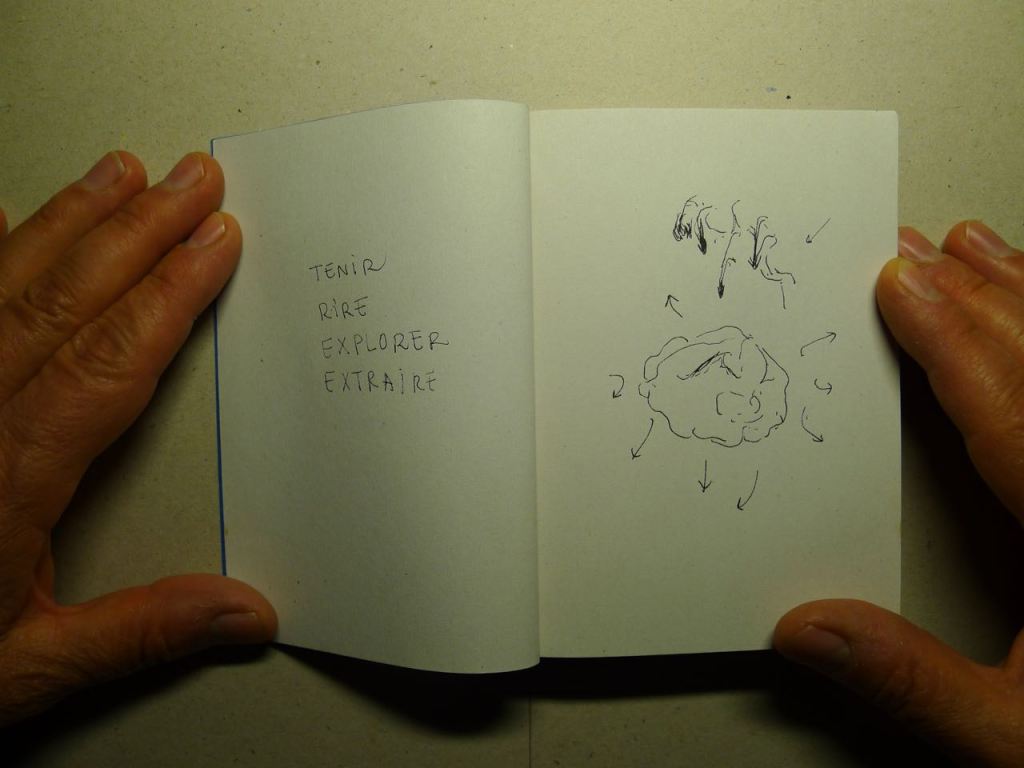 TENIR
RIRE
EXPLORER
EXTRAIRE